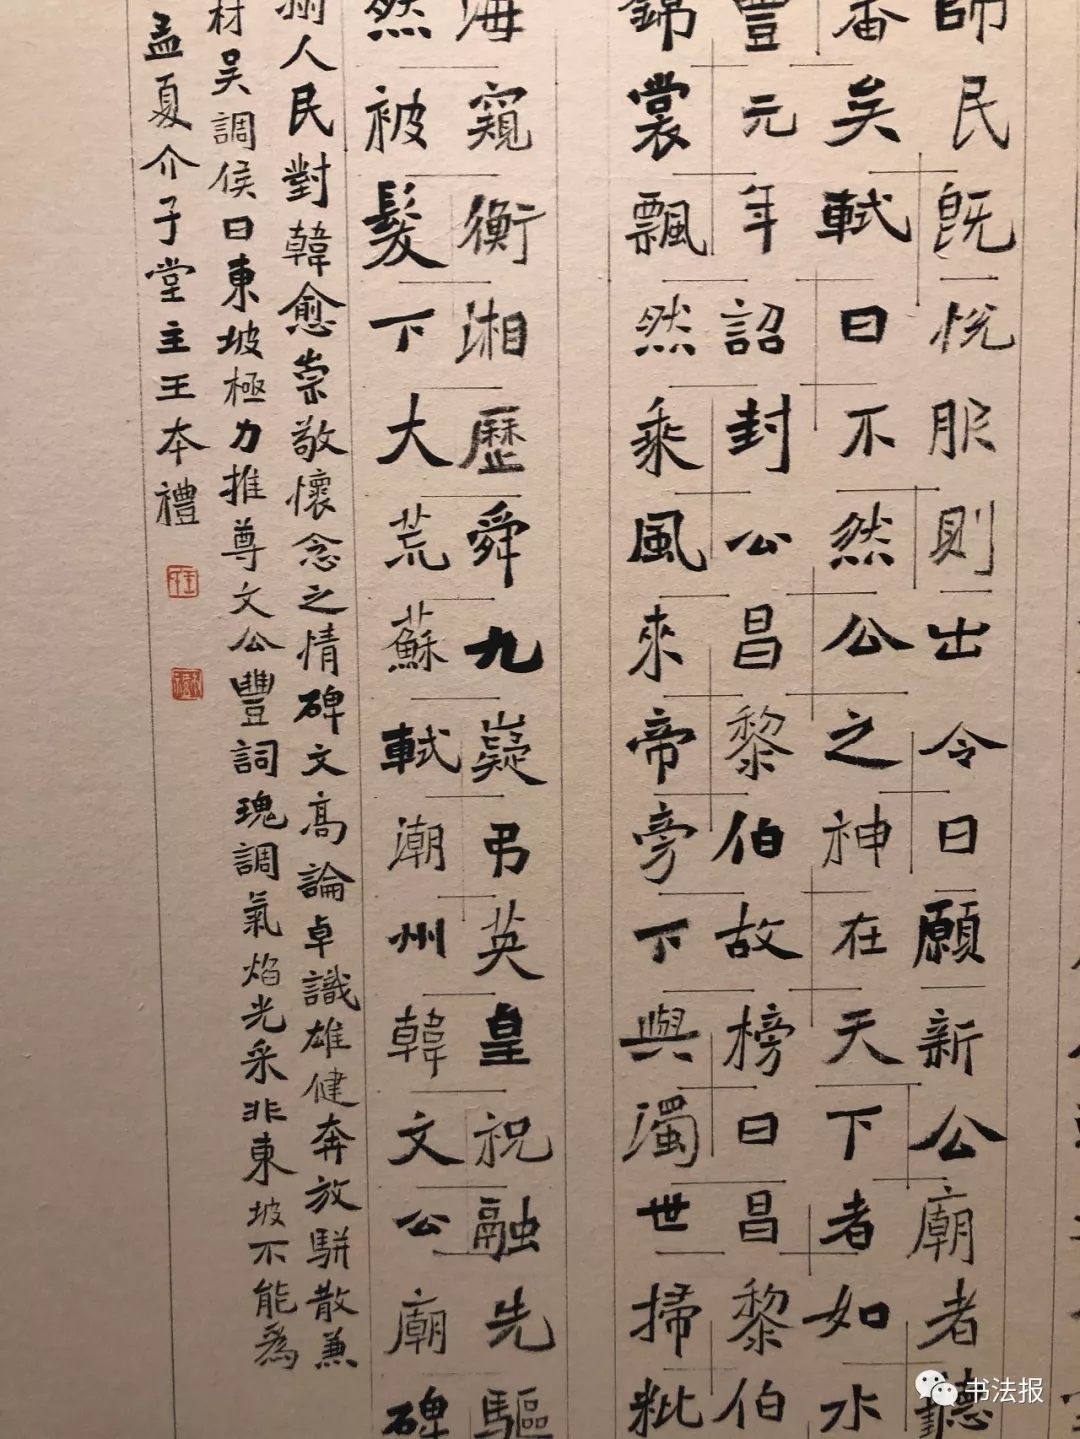 師民既悦服則出令日願新公廟者聽
審矣軾曰不然公之神在天下者如水
豐元年詔封公昌黎伯故榜曰昌黎伯
錦裳飄然乘風來帝旁下與濁世掃粃
海窺衡湘歷舜九嶷弔英皇祝融先驅
然被髮下大荒蘇軾潮州韓文公廟碑
人民對韓愈崇敬懷念之情碑文高論卓識雄健奔放駢散兼
材吳調侯曰東坡極力推尊文公豐詞瑰調氣焰光采非東坡不能爲
孟夏介子堂主王本禮
书法报